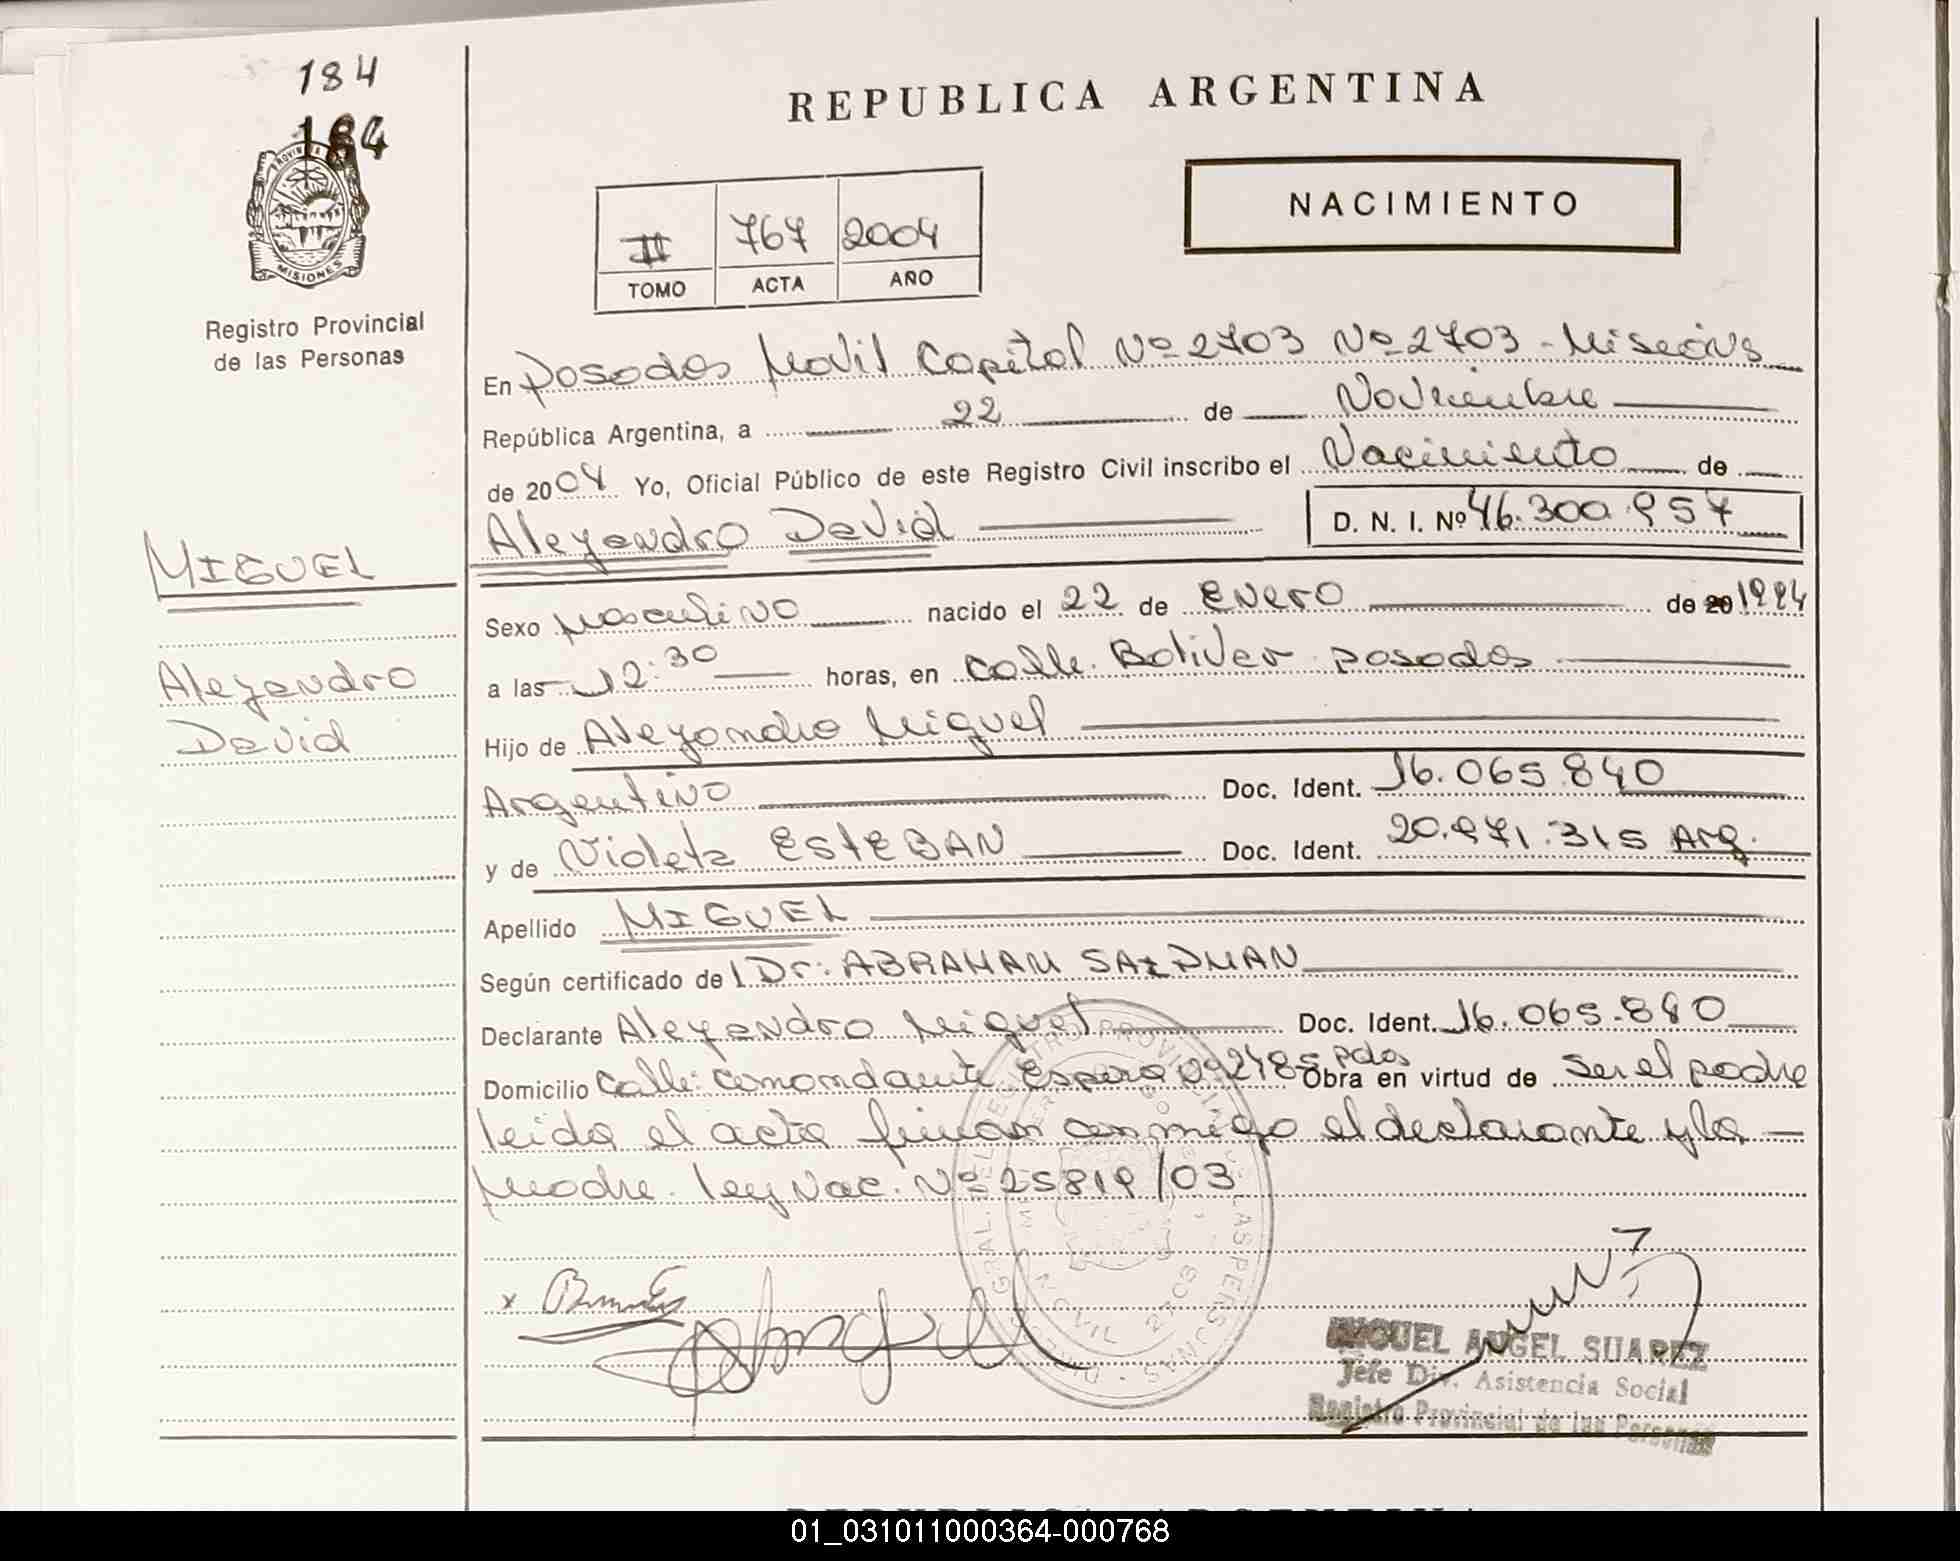 184
184
PROVINCIA
MISIONES
Registro Provincial
de las Personas
REPUBLICA ARGENTINA
NACIMIENTO
II 767 2004
TOMO ACTA AÑO
En Posadas Movil Capital Nº 2703 Nº 2703 - Misiones
República Argentina, a 22 de Noviembre
de 2004 Yo, Oficial Público de este Registro Civil inscribo el Nacimiento de
Alejandro David D. N. I. Nº 46.300.957
MIGUEL
Alejandro
David
Sexo Masculino nacido el 22 de Enero de 20 1994
a las 12:30 horas, en Calle. Bolivar Posadas
Hijo de Alejandro Miguel
Argentino Doc. Ident. 16.065.840
y de Violeta ESTEBAN Doc. Ident. 20.971.315 Arg.
Apellido MIGUEL
Según certificado de l Dr: ABRAHAM
Declarante Alejandro Miguel Doc. Ident. 16.065.840
Domicilio Calle: Comandante Espora Nº 2485 Pdas Obra en virtud de Ser el padre
leida el acta firman conmigo el declarante y la
Madre. ley Nac. Nº 25819/03
MIGUEL ANGEL SUAREZ
Jefe Div. Asistencia Social
Registro Provincial de las Personas
REPUBLICA ARGENTINA
01_031011000364-000768